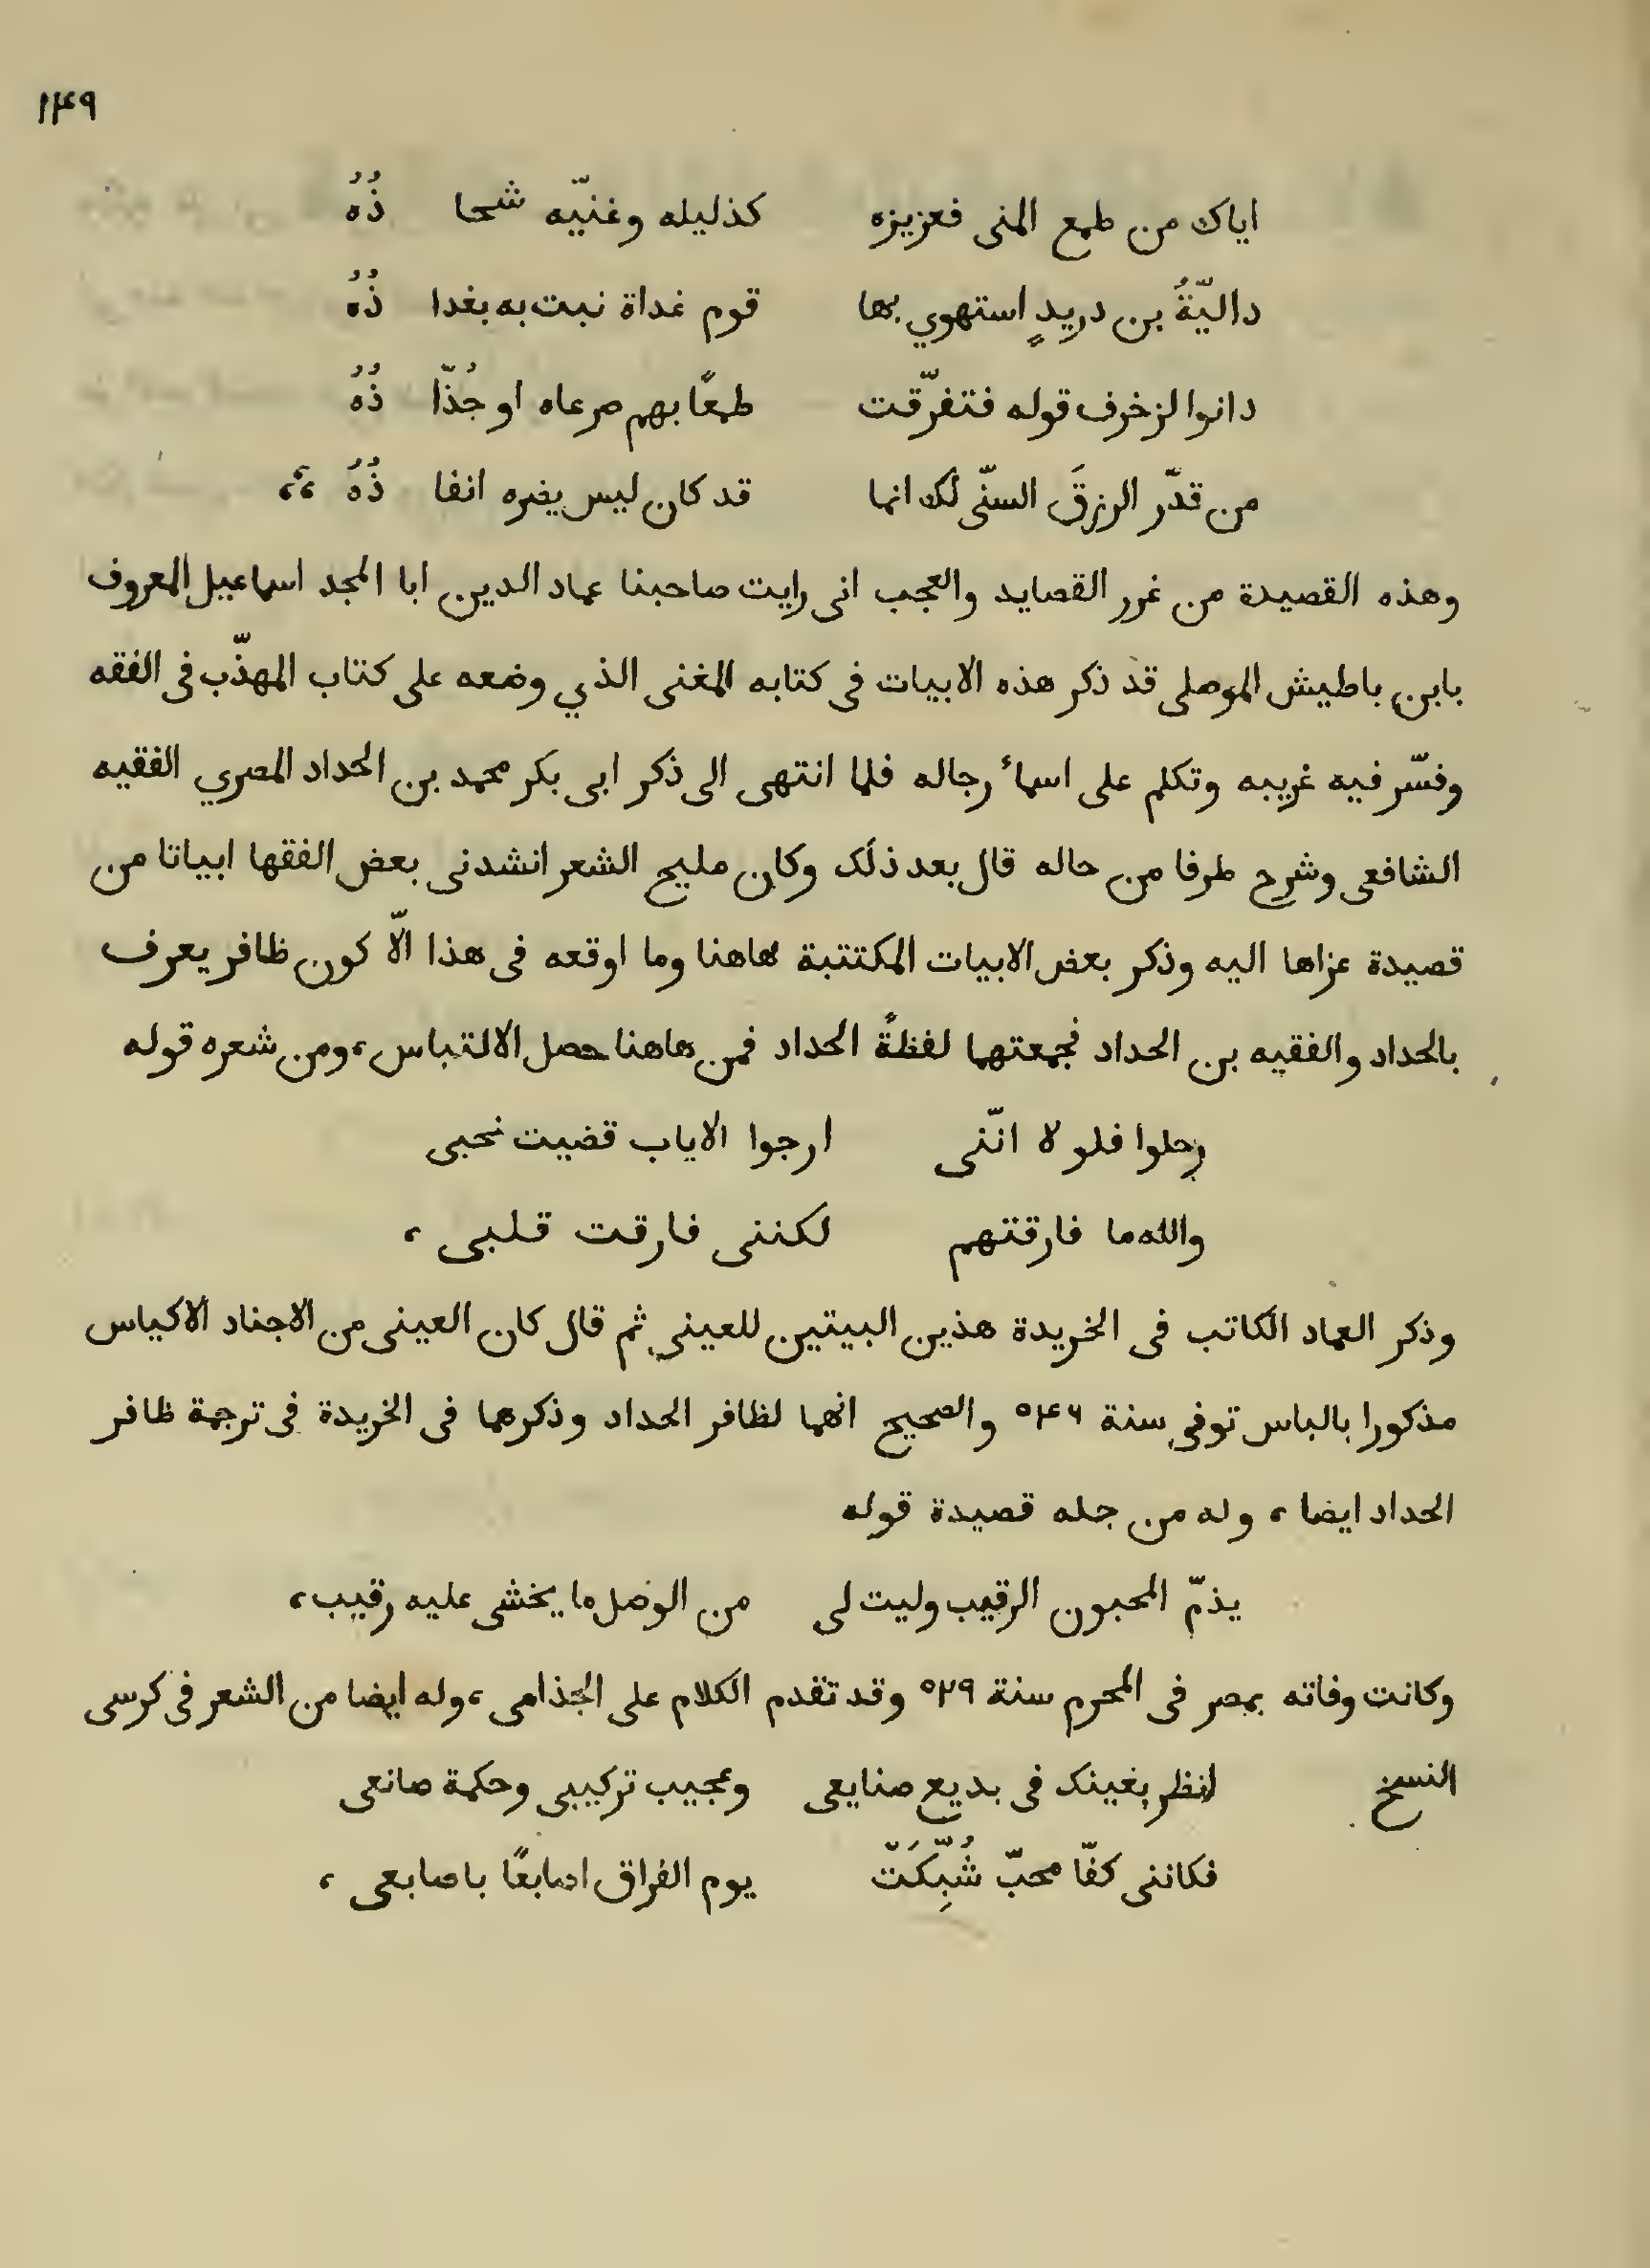 ١٤٩
اياك من طمع المنى فعزيزه كذليله وغنيّه شحا ذُهُ
داليّةُ بن دريدٍ استهوي بها قوم غداة نبت به بغدا ذُهُ
دانوا لزخرف قوله فتفرّقت طمعًا بهم صرعاه او جُذّا ذُهُ
من قدّر الرزقَ السنّى لك انما قد كان ليس يضره انفا ذُهُ ،،
وهذه القصيدة من غرر القصايد والعجب انى رايت صاحبنا عماد الدين ابا المجد اسماعيل المعروف
بابن باطيش الموصلى قد ذكر هذه الابيات فى كتابه المغنى الذي وضعه على كتاب المهذّب فى الفقه
وفسّر فيه غريبه وتكلم على اسمأ رجاله فلما انتهى الى ذكر ابى بكر محمد بن الحداد المصري الفقيه
الشافعى وشرح طرفا من حاله قال بعد ذلك وكان مليح الشعر انشدنى بعض الفقها ابياتا من
قصيدة عزاها اليه وذكر بعض الابيات المكتتبة هاهنا وما اوقعه فى هذا الّا كون ظافر يعرف
بالحداد والفقيه بن الحداد فجمعتهما لفظةً الحداد فمن هاهنا حصل الالتباس ، ومن شعره قوله
رحلوا فلو لا انّنى ارجوا الاياب قضيت نحبى
والله ما فارقتهم لكننى فارقت قلبى ،
وذكر العماد الكاتب فى الخريدة هذين البيتين للعينى ثم قال كان العينى من الاجناد الاكياس
مذكورا بالباس توفى سنة ٥٤٦ والصحيح انهما لظافر الحداد وذكرهما فى الخريدة فى ترجمة ظافر
الحداد ايضا ، وله من جمله قصيدة قوله
يذمّ المحبون الرقيب وليت لى من الوصل ما يخشى عليه رقيب ،
وكانت وفاته بمصر فى المحرم سنة ٥٢٩ وقد تقدم الكلام على الجذامى ، وله ايضا من الشعر فى كرسى
النسخ انظر بغينك فى بديع صنايعى وعجيب تركيبى وحكمة صانعى
فكاننى كفّا محبّ شُبِّكَتّ يوم الفراق اصابعًا باصابعى ،